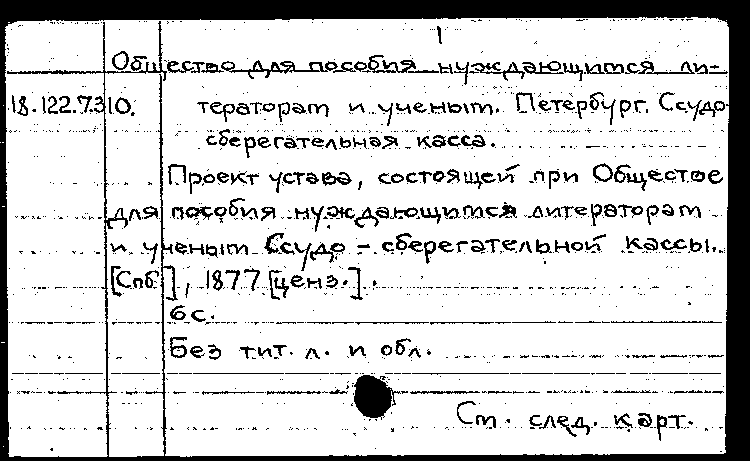 Общество для пособия нуждающимся ли-
18.122.7.310. тераторам и ученым. Петербург. Ссудо-
сберегательная касса.
Проект устава, состоящей при Обществе
для пособия нуждающимся литераторам
и ученым Ссудо-сберегательной кассы.
[Спб], 1877 [ценз.].
6с.
Без тит. л. и обл.
См. след. карт.